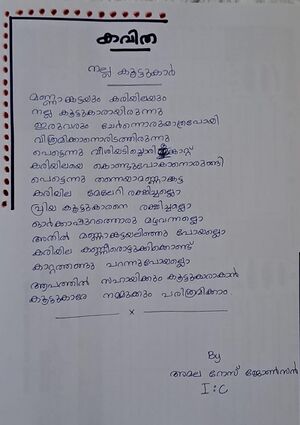 കവിത
നല്ല കൂട്ടുകാർ
മണ്ണാങ്കട്ടയും കരിയിലയും
നല്ല കൂട്ടുകാരായിരുന്നു
ഇരുവരും ചേർന്നൊരുയാത്രപോയി
വിശ്രമിക്കാനൊരിടത്തിരുന്നു
പെട്ടെന്നു വീശിയടിച്ചൊരി കാറ്റ്
കരിയിലയെ കൊണ്ടുപോകാനൊരുങ്ങി
പെട്ടെന്നു തന്നെയാമണ്ണാങ്കട്ട
കരിയില മേലേറി രക്ഷിച്ചല്ലൊ
പ്രിയ കൂട്ടുകാരനെ രക്ഷിച്ചല്ലൊ
ഓർക്കാപ്പുറത്തൊരു മഴവന്നല്ലൊ
അതിൽ മണ്ണാങ്കട്ടയലിഞ്ഞു പോയല്ലൊ
കരിയില കണ്ണീരൊട്ടുക്കിക്കൊണ്ട്
കാറ്റത്തങ്ങു പറന്നുപോയല്ലൊ
ആപത്തിൽ സഹായിക്കും കൂട്ടുകാരാകാൻ
കൂട്ടുകാരേ നമ്മുക്കും പരിശ്രമിക്കാം
x
By
അമല റോസ് ജോൺസൻ
I:C